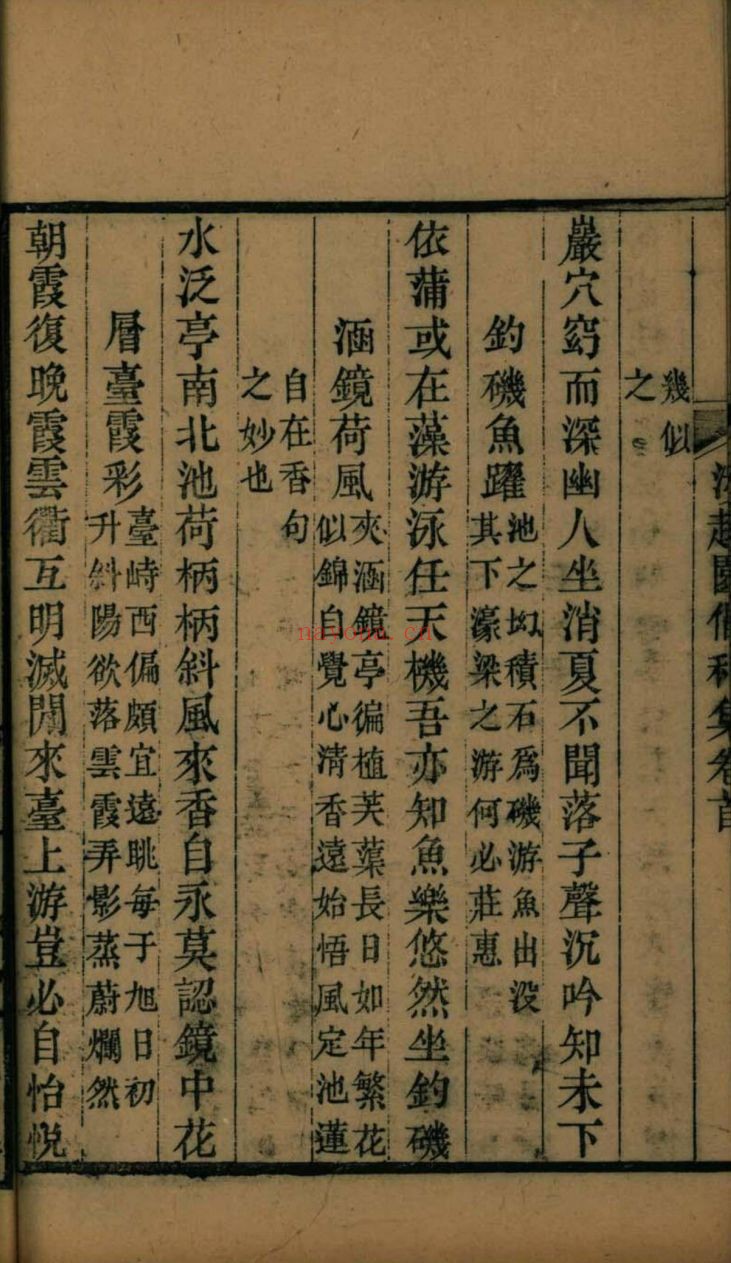 幾似
之
巖穴窈而深幽人坐消夏不聞落子聲沉吟知未下
釣磯魚躍
池之㘭積石爲磯游魚出没
其下濠梁之游何必莊惠
依蒲或在藻游泳任天機吾亦知魚樂悠然坐釣磯
涵鏡荷風
夾涵鏡亭徧植芙蕖長日如年繁花
似錦自覺心清香遠始悟風定池蓮
自在香句
之妙也
水泛亭南北池荷柄柄斜風來香自永莫認鏡中花
層臺霞彩
臺峙西偏頗宜遠眺每于旭日初
升斜陽欲落雲霞弄影蒸蔚爛然
朝霞復晚霞雲衢互明滅閒來臺上游豈必自怡悅